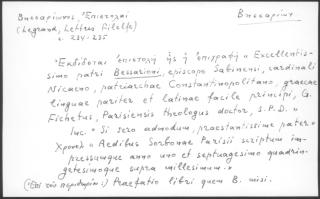 Βησσαρίωνος, Ἐπιστολαί
Βησσαρίων
(Legrand, Lettres Filelfe)
σ. 234-235
Ἐκδίδοται ἐπιστολὴ ἧς ἡ ἐπιγραφὴ « Excellentis-
simo patri Bessarioni, episcopo Sabinensi, cardinali
Nicaeno, patriarchae Constantinopolitano, graecae
linguae pariter et latinae facile principi, G.
Fichetus, Parisiensis theologus doctor, S.P.D. »
Inc. « Si sero admodum, praestantissime pater »
Χρονολ. « Aedibus Sorbonae Parisii scriptum im-
pressumque anno uno et septuagesimo quadrin-
gentesimoque supra millesimum. »
Praefatio libri quem B. misi.